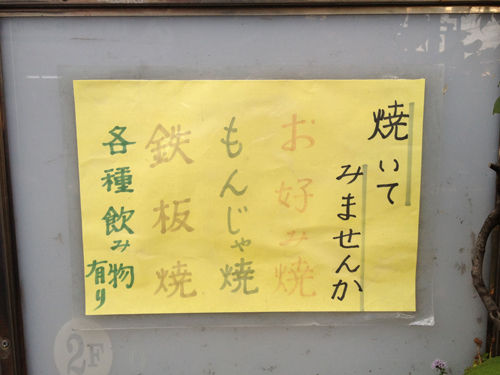 焼いて
みませんか
お好み焼
もんじゃ焼
鉄板焼
各種飲み物
有り
2F